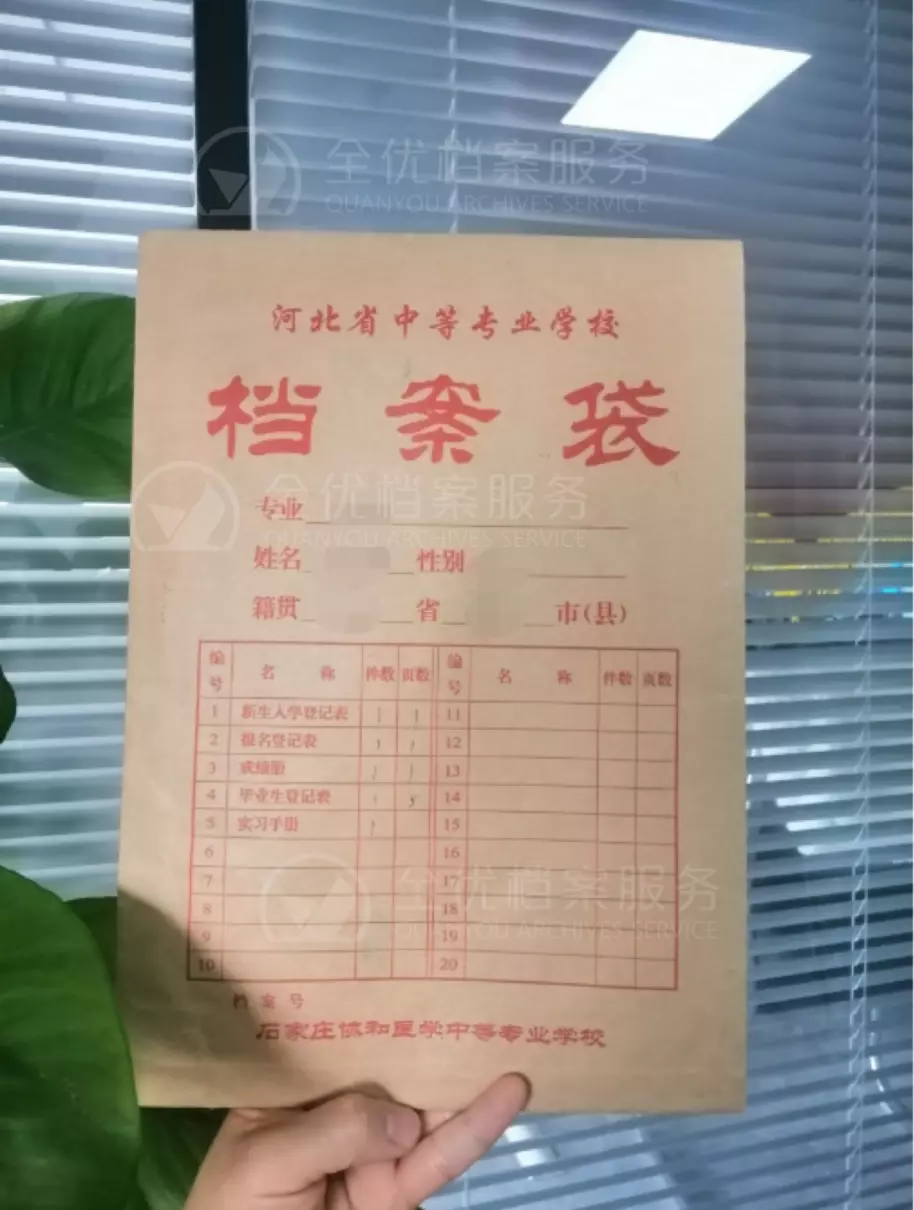 全优档案服务
QUANYOU ARCHIVES SERVICE
河北省中等专业学校
档案袋
全优档案服务
QUANYOU ARCHIVES SERVICE
专业
姓名 性别
籍贯 省 市(县)
编号 名称 件数 页数 编号 名称 件数 页数
1 新生入学登记表 1 1 11
2 报名登记表 1 1 12
3 成绩册 1 1 13
4 毕业生登记表 1 14
5 实习手册 1 15
6 16
7 17
8 18
9 19
10 20
全优档案服务
QUANYOU ARCHIVES SERVICE
档案号
石家庄协和医学中等专业学校